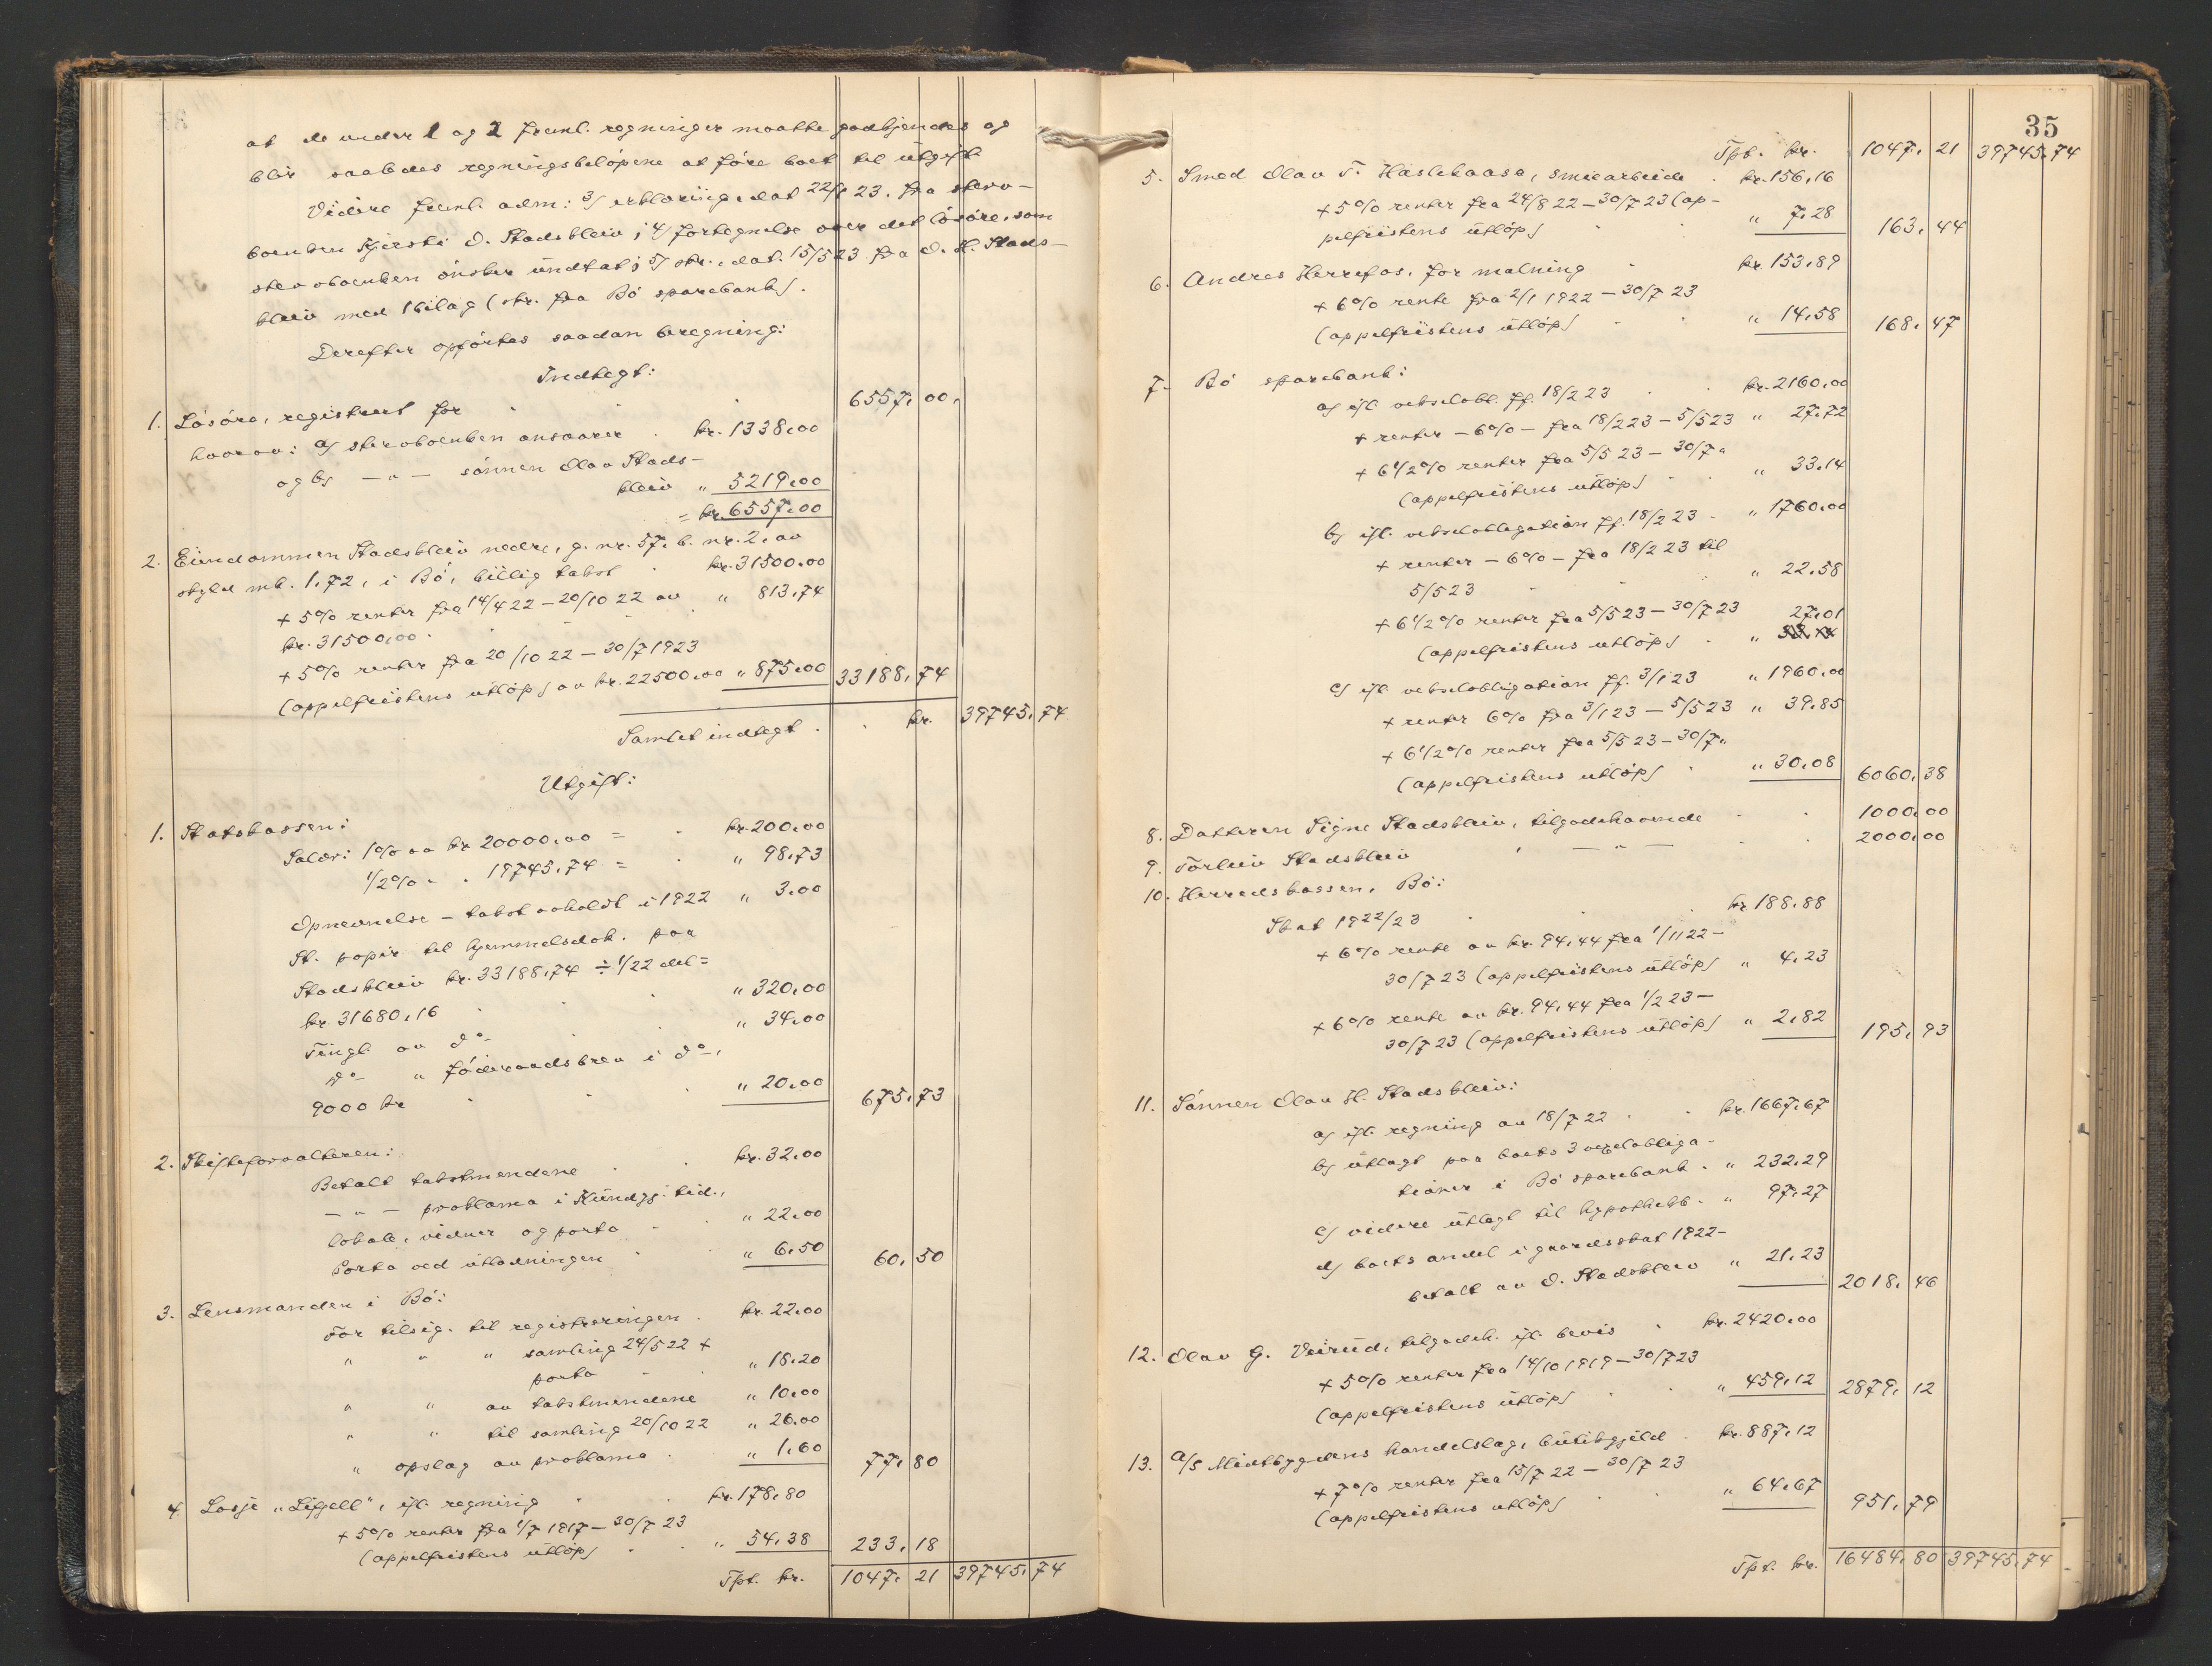 at de under 1 og 2 freml. regninger maatte godkjendes og
blir saaledes regningsbelöpene at före boet til utgift.
Videre freml. adm: 3) erklæring, dat 22/1 23. fra sterv-
boenken Kjersti O. Stadskleiv; 4) fortegnelse over det lösöre, som
stervboenken önsker undtat; 5) skr. dat. 15/5 23 fra O. H. Stads-
kleiv med 1 bilag (skr. fra Bö sparebank).
Derefter opförtes saadan beregning:
Indtegt:
1. Lösöre, registrert for 6557,00.
hvorav: a) stervboenken ansvarer kr. 1338,00
og b) —„— sönnen Olav Stads-
kleiv „ 5219,00
= kr. 6557,00
2. Eiendommen Stadskleiv nedre, g. nr. 57, b. nr. 2, av
skyld mk. 1,72, i Bö, billig takst kr. 31500,00
+ 5% renter fra 14/4 22 – 20/10 22 av „ 813,74
kr. 31500,00
+ 5% renter fra 20/10 22 – 30/7 1923
(appelfristens utlöp) av kr. 22500,00 „ 875,00 33188,74
Samlet indtegt kr. 39745,74
Utgift:
1. Statskassen:
Salær: 1% av kr 20000,00 = kr. 200,00
1/2% „ „ 19745,74 = „ 98,73
Opnevnelse – takst avholdt i 1922 „ 3,00
St. papir til hjemmelsdok. paa
Stadskleiv kr. 33188,74 ÷ 1/22 del =
kr. 31680,16 „ 320,00
Tingl. av do „ 34,00
do „ föderaadsbrev i do,
9000 kr „ 20,00 675,73
2. Skifteforvalteren:
Betalt takstmendene kr. 32,00
—„— proklama i Kundgj. tid.,
lokale, vidner og porto „ 22,00
Porto ved utlodningen „ 6,50 60,50
3. Lensmanden i Bö:
For tilsig. til registreringen kr. 22,00
„ „ „ samling 24/5 22 +
porto „ 18,20
„ „ av takstmendene „ 10,00
„ „ til samling 20/10 22 „ 26,00
„ opslag av proklama „ 1,60 77,80
4. Losje „Lifjell", ifl. regning kr. 178,80
+ 5% renter fra 1/7 1917 – 30/7 23
(appelfristens utlöp) „ 54,38 233,18
Tpt. kr. 1047,21 39745,74
35
Tpt. kr. 1047,21 39745,74
5. Smed Olav T. Haslekaasa, smiearbeide kr. 156,16
+ 5% renter fra 24/8 22 – 30/7 23 (ap-
pelfristens utlöp) „ 7,28 163,44
6. Andres Herrefos, for malning kr. 153,89
+ 6% rente fra 2/1 1922 – 30/7 23
(appelfristens utlöp) „ 14,58 168,47
7. Bö sparebank:
a) ifl. vekselobl. pf. 18/2 23 kr. 2160,00
+ renter – 6% – fra 18/2 23 – 5/5 23 „ 27,72
+ 6 1/2% renter fra 5/5 23 – 30/7 „
(appelfristens utlöp) „ 33,14
b) ifl. vekselobligation pf. 18/2 23 „ 1760,00
+ renter – 6% – fra 18/2 23 til
5/5 23 „ 22,58
+ 6 1/2% renter fra 5/5 23 – 30/7 23 27,01
(appelfristens utlöp) „
c) ifl. vekselobligation pf. 3/1 23 „ 1960,00
+ renter 6% fra 3/1 23 – 5/5 23 „ 39,85
+ 6 1/2% renter fra 5/5 23 – 30/7 „
(appelfristens utlöp) „ 30,08 6060,38
8. Datteren Signe Stadskleiv, tilgodehavende 1000,00
9. Torleiv Stadskleiv —„— 2000,00
10. Herredskassen, Bö:
Skat 1922/23 kr 188,88
+ 6% rente av kr. 94,44 fra 1/11 22 –
30/7 23 (appelfristens utlöp) „ 4,23
+ 6% rente av kr. 94,44 fra 1/2 23 –
30/7 23 (appelfristens utlöp) „ 2,82 195,93
11. Sönnen Olav H. Stadskleiv:
a) ifl. regning av 18/7 22 kr. 1667,67
b) utlagt paa boets 3 vexelobliga-
tioner i Bö sparebank „ 232,29
c) videre utlagt til hypothekb. „ 97,27
d) boets andel i gaardsskat 1922 –
betalt av O. Stadskleiv „ 21,23 2018,46
12. Olav G. Veirud, tilgodeh. ifl. bevis kr. 2420,00
+ 5% renter fra 14/10 1919 – 30/7 23
(appelfristens utlöp) „ 459,12 2879,12
13. A/S Midtbygdens handelslag, butikgjeld kr. 887,12
+ 7% renter fra 15/7 22 – 30/7 23
(appelfristens utlöp) „ 64,67 951,79
Tpt. kr. 16484,80 39745,74